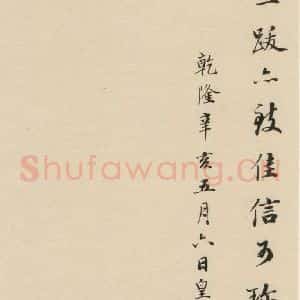 一跋亦致佳信可珍
乾隆辛亥五月六日皇
Shufawang.cn